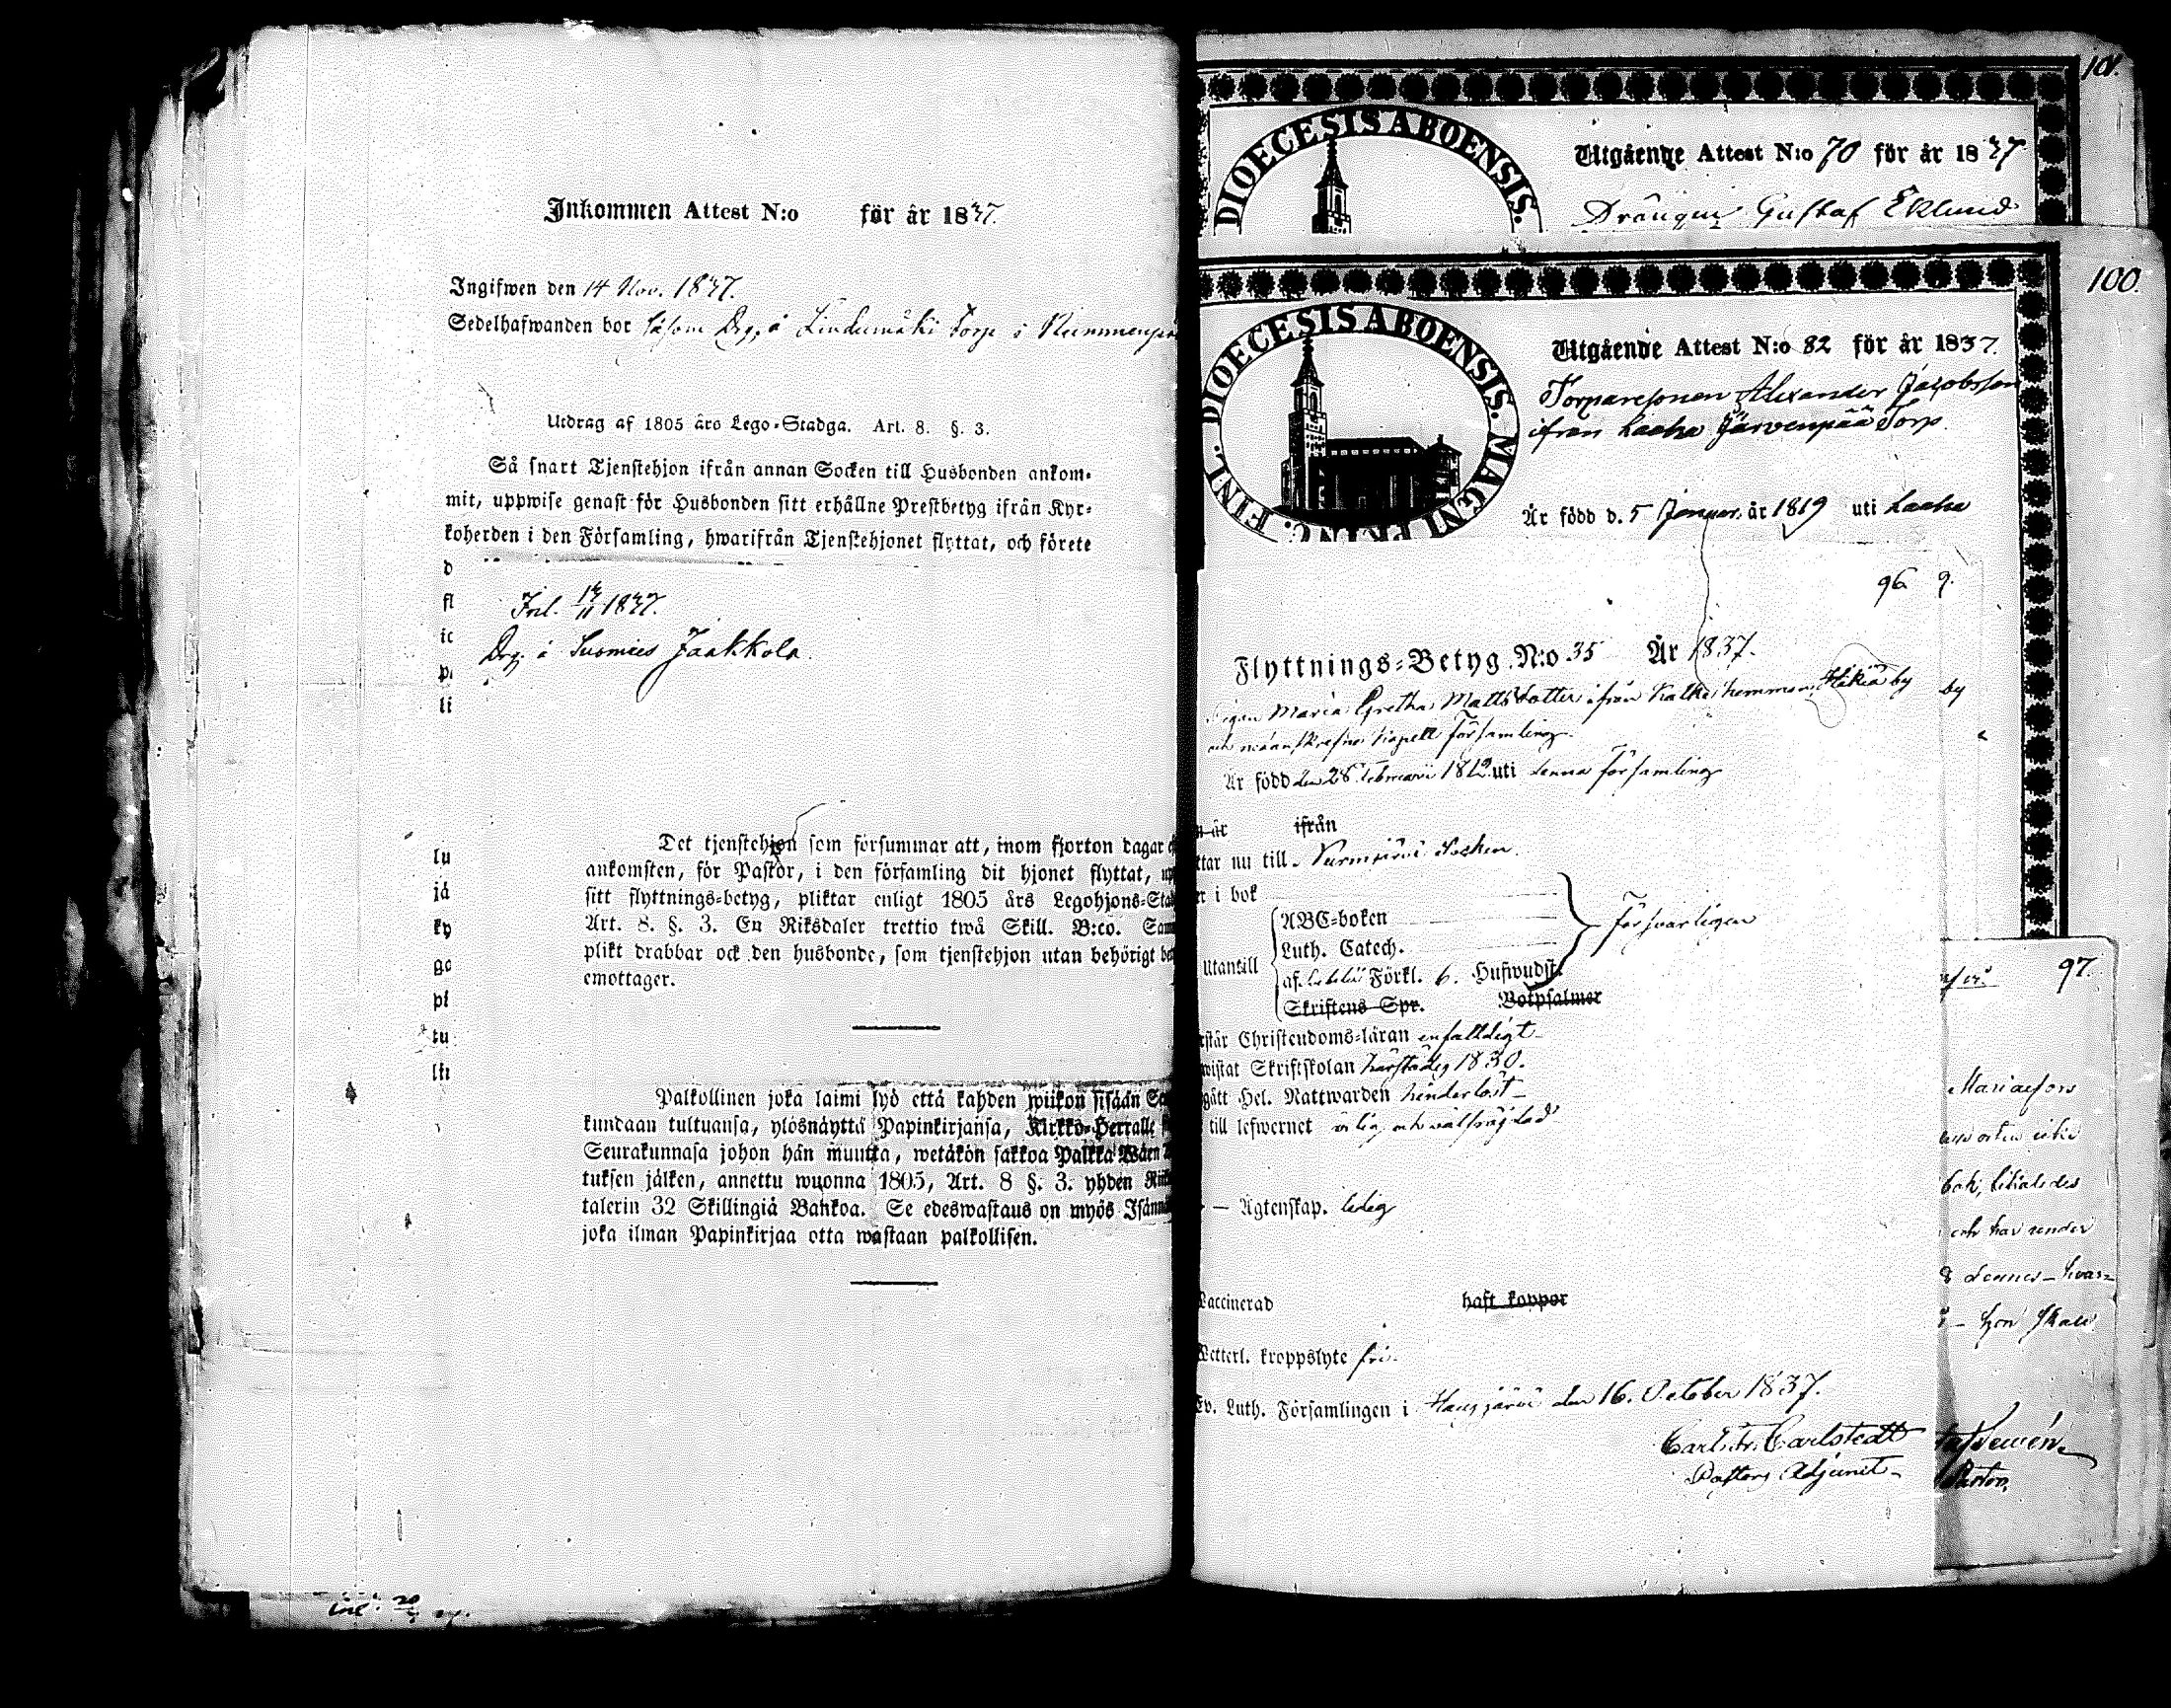 Inkommen Attest N:o för år 1837.
Ingifwen den 14 Nov. 1837.
Sedelhafwanden bor såsom Drg. å Lindumäki Torp i
Utdrag af 1805 års Lego-Stadga. Art. 8. §. 3.
Så snart Tjenstehjon ifrån annan Socken till Husbonden ankom-
mit, uppwise genast för Husbonden sitt erhållne Prestbetyg ifrån Kyr-
koherden i den Församling, hwarifrån Tjenstehjonet flyttat, och förete
d
fl
ic
li
Inl. 1837.
Drg. å Suomies Jaakkola.
lu
jä
ky
ga
pl
tu
Det tjenstehjon som försummar att, inom fjorton dagar
ankomsten, för Pastor, i den församling dit hjonet flyttat,
sitt flyttnings-betyg, pliktar enligt 1805 års Legohjons-Sta
Art. 8. §. 3. En Riksdaler trettio twå Skill. B:co. Sam
plikt drabbar ock den husbonde, som tjenstehjon utan behörigt be
emottager.
Palkollinen joka laimi lyö että kahden wiikon sisään Se
kundaan tultuansa, ylösnäyttä Papinkirjansa, Kirkko-Herralle
Seurakunnasa johon hän muutta, wetäkön sakkoa Palkka Wäen
tuksen jälken, annettu wuonna 1805, Art. 8 §. 3. yhden Rik
talerin 32 Skillingiä Bankoa. Se edeswastaus on myös Isännä
joka ilman Papinkirjaa otta wastaan palkollisen.
inl. 20
101.
DIOECESIS ABOENSIS.
Utgående Attest N:o 70 för år 1837
Drängen Gustaf Eklund
100.
FINL. DIOECESIS ABOENSIS. MAGNI PRINC.
Utgående Attest N:o 82 för år 1837.
Torparesonen Alexander Jacobsson
ifrån Laaha Järvenpää Torp.
Är född d. 5 Januar. år 1819 uti Laaha
96 9.
Flyttnings-Betyg N:o 35 År 1837.
Pigan Maria Gretha Mattsdotter ifrån hemman, Hikiä by
by
Kapell församling.
Är född den 28 Februarii 1812 uti denna församling
n är ifrån
ttar nu till Nurmijärvi Socken.
er i bok
ABC-boken
Luth. Catech.
Utantill
af Förkl. 6. Hufwudst.
Skriftens Spr. Botpsalmer
försvarligen
rstår Christendoms-läran enfalldigt
wistat Skriftskolan härstädes 1830.
gått Hel. Nattwarden hinderlöst
till lefwernet ärlig och välfrägdad
— Ägtenskap. ledig
Vaccinerad haft koppor
Wetterl. kroppslyte fri.
Ev. Luth. Församlingen i Hausjärvi den 16. October 1837.
Carl Fr. Carlstedt
Pastors Adjunct
97.
Mariaefors
och har under
hon skall
Pastor.